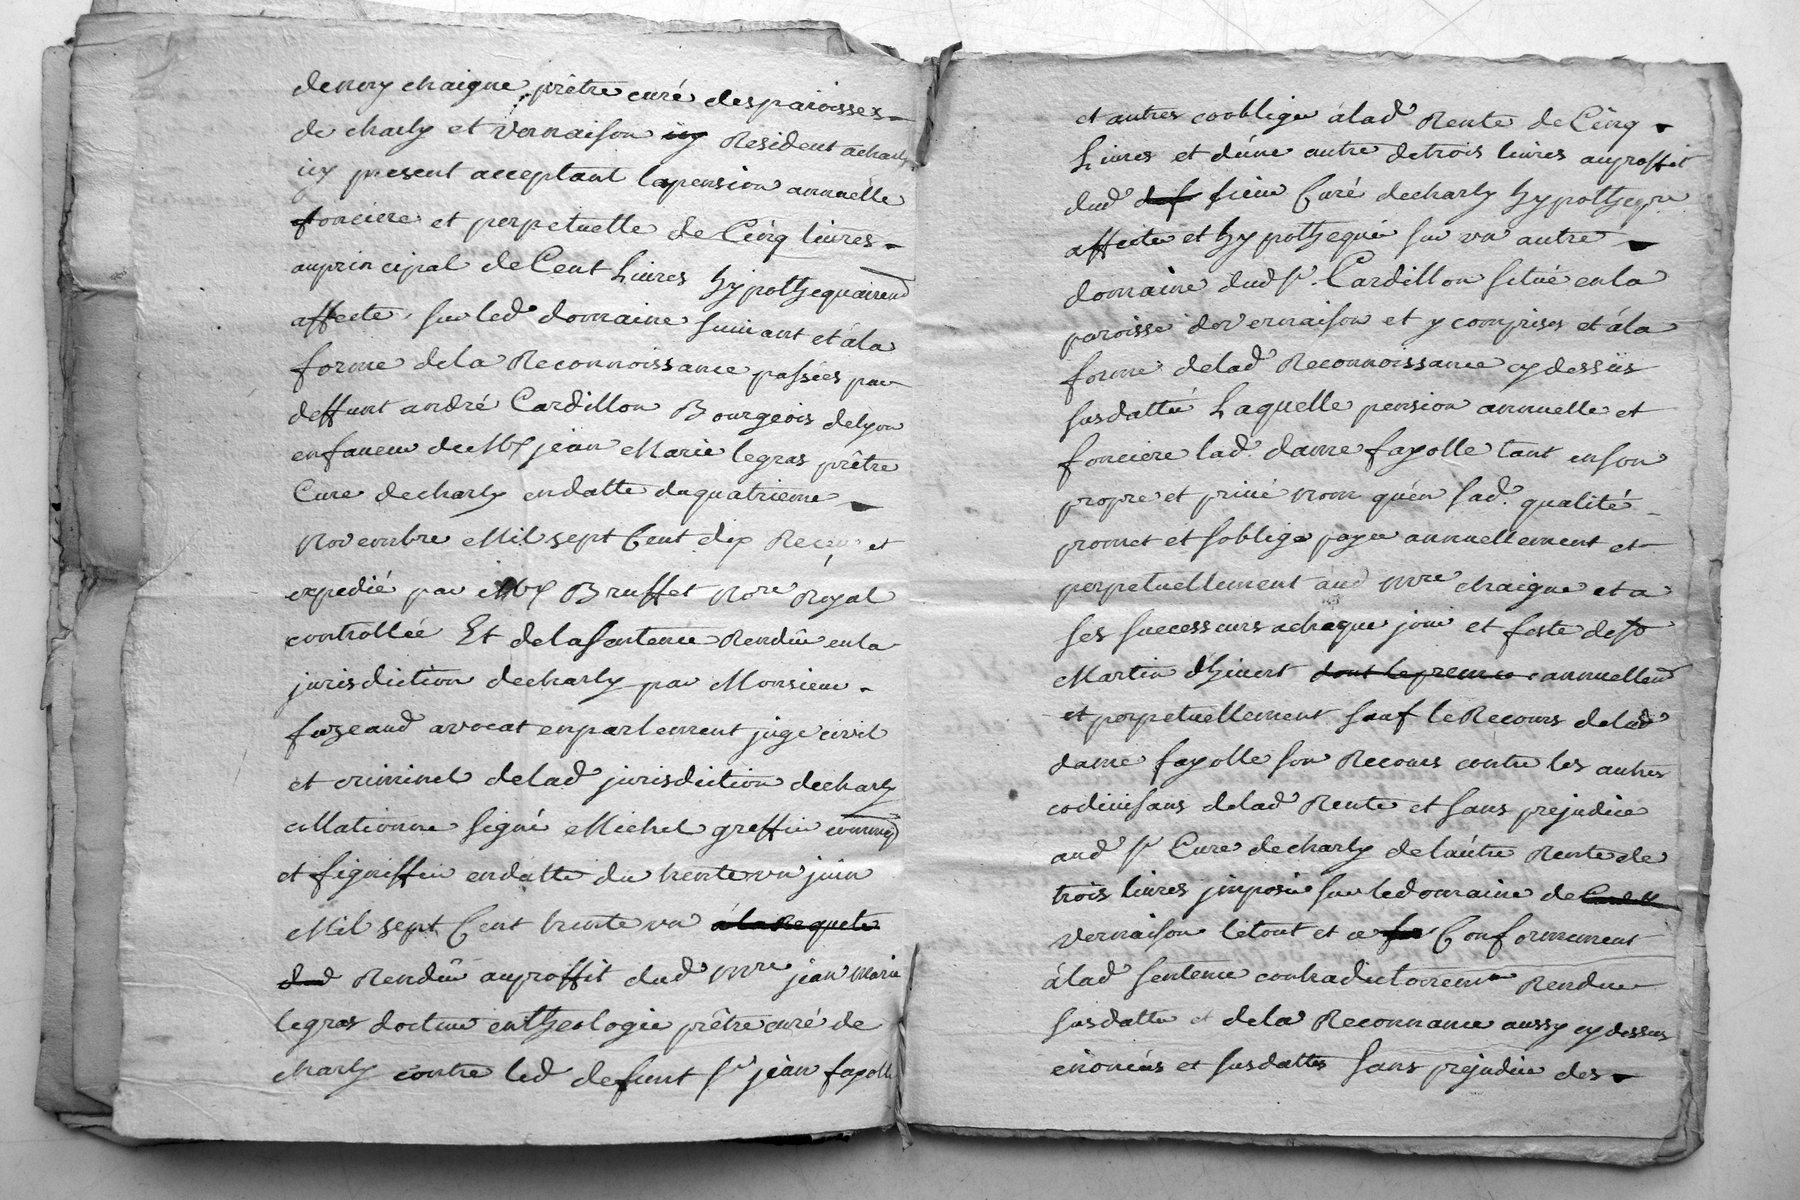 chaigne prêtre curé des paroisses
de charly et vernaison icy Resident a charly
icy present acceptant la pension annuelle
fonciere et perpetuelle de Cinq livres
au principal de Cent Livres hypothequairem^t
affecté sur led domaine suivant et à la
forme de la Reconnoissance passées par
deffunt andré Cardillon Bourgeois de lyon
en faveur de M^e jean Marie legras prêtre
Curé de charly en datte du quatrieme
Novembre Mil sept Cent dix et
expedié par M^e Bruffet No^re Royal
controllée Et de la Sentence Rendüe en la
jurisdiction de charly par Monsieur
avocat en parlement juge civil
et criminel de lad jurisdiction de charly
signé Michel greffier commis
et signiffié en datte du trente un juin
Mil sept Cent trente un a la Requete
dud Rendüe au proffit dud m^re jean marie
legras docteur en theologie prêtre curé de
charly contre led defunt s^r jean fayolle
et autres coobligé à lad Rente de Cinq
Livres et d'une autre de trois livres au proffit
dud sieur Curé de charly hypotheque
affectée et hypothequée sur un autre
domaine dud s^r Cardillon situé en la
paroisse de vernaison et y comprises et à la
forme de lad Reconnoissance cy dessus
susdattée Laquelle pension annuelle et
fonciere lad dame fayolle tant en son
propre et privé nom qu'en sad qualité
promet et s'oblige payer annuellement et
perpetuellement aud m^re chaigne et a
ses successeurs a chaque jour et feste de s^t
Martin d'hivert dont le premier annuellem^t
et perpetuellement sauf le Recours de lad
dame fayolle son Recours contre les autres
codivisans de lad Rente et sans prejudice
aud s^r Curé de charly de l'autre Rente de
trois livres jmposée sur le domaine de
vernaison le tout et ce Conformement
à lad sentence contradictoirem^t Rendue
susdattée et de la Reconnance aussy cy dessus
enoncés et susdattés Sans prejudice des